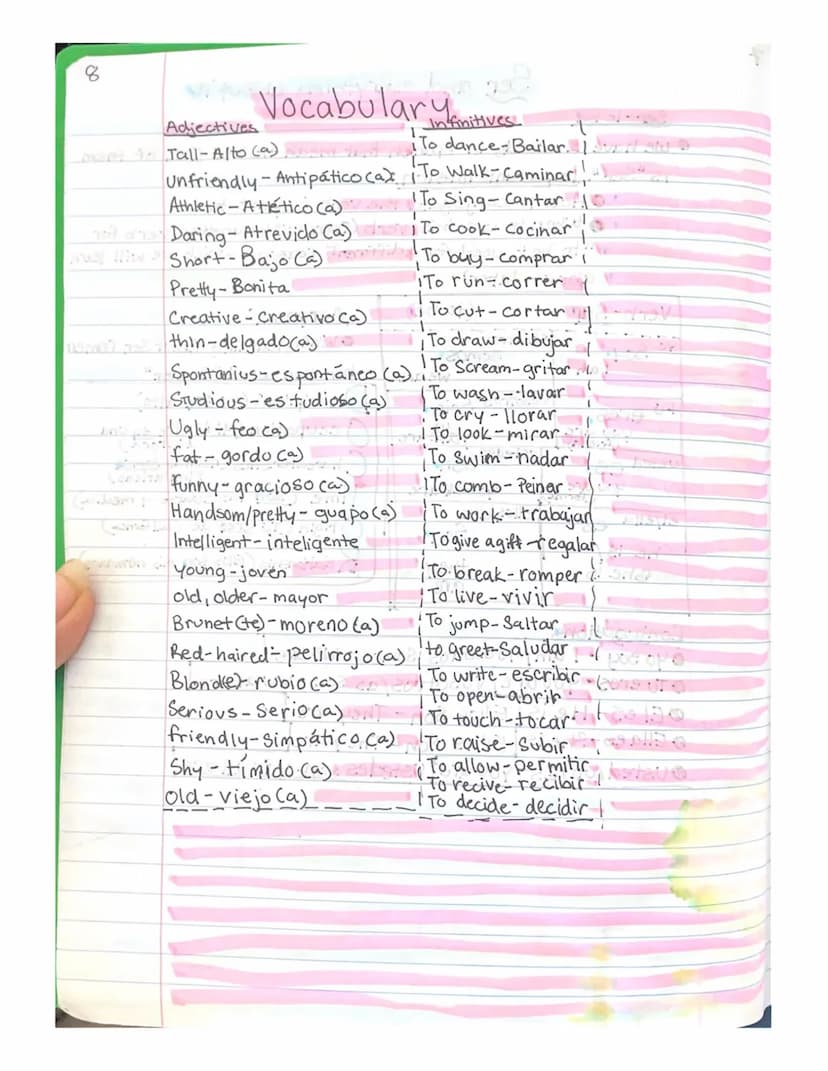 8
Vocabulary
Adjectives
Tall-Alto (a)
Unfriendly-Antipático(a)
Athletic-Atlético(a)
Daring-Atrevido(a)
Short-Bajo(a)
Pretty-Bonita
Creative-creativo(a)
thin-delgado(a)
Spontanius-espontáneo (a)
Studious-estudioso(a)
Ugly-feo(a)
fat-gordo(a)
Funny-gracioso(a)
Handsom/pretty-guapo(a)
Intelligent-inteligente
Young-joven
old, older-mayor
Brunet(te)-moreno(a)
Red-haired-pelirrojo(a)
Blond(e)-rubio(a)
Serious-Serio(a)
friendly-Simpático(a)
Shy-tímido(a)
Old-viejo(a)
Infinitives
To dance-Bailar
To Walk-caminar
To Sing-Cantar
To cook-Cocinar
To buy-comprar
To run-correr
To cut-cortar
To draw-dibujar
To Scream-gritar
To wash-lavar
To cry-llorar
To look-mirar
To Swim-nadar
To comb-Peinar
To work-trabajar
To give a gift-regalar
To break-romper
To live-vivir
To jump-Saltar
to greet-Saludar
To write-escribir
To open-abrir
To touch-tocar
To raise-Subir
To allow-permitir
To recive-recibir
To decide-decidir